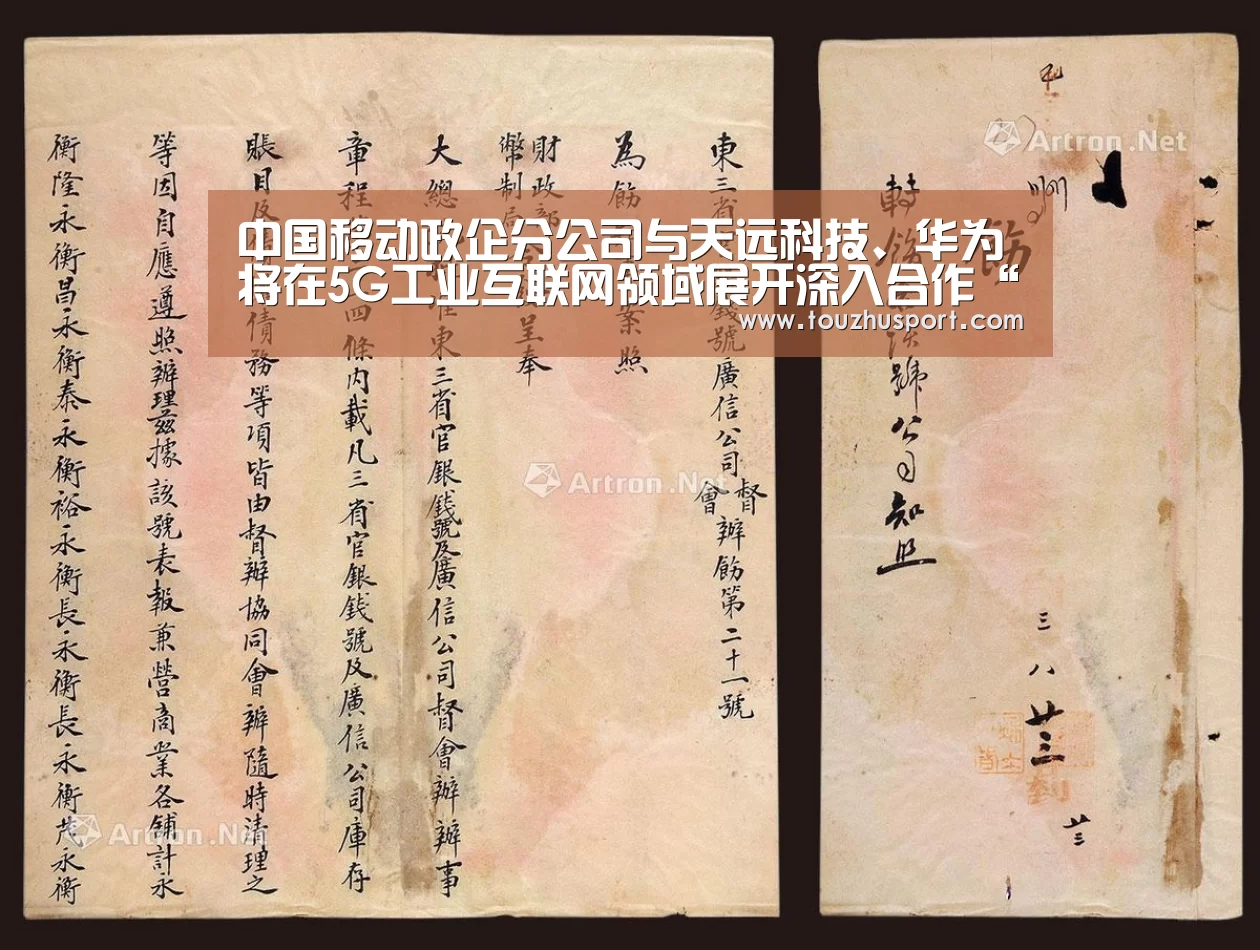 中国移动政企分公司与天远科技、华为
将在5G工业互联网领域展开深入合作“
www.touzhusport.com
飭
轉飭 號公司知照
三 八 廿三
廿三
到
東三省 錢號廣信公司督會辦飭第二十一號
為飭 案照
財政部
幣制局 呈奉
大總 准東三省官銀錢號及廣信公司督會辦辦事
章程 四條內載凡三省官銀錢號及廣信公司庫存
賬目及 債務等項皆由督辦協同會辦隨時清理之
等因自應遵照辦理茲據該號表報兼營商業各舖計永
衡隆永衡昌永衡泰永衡裕永衡長永衡長永衡茂永衡
Artron.Net
Artron.Net
Artron.Net